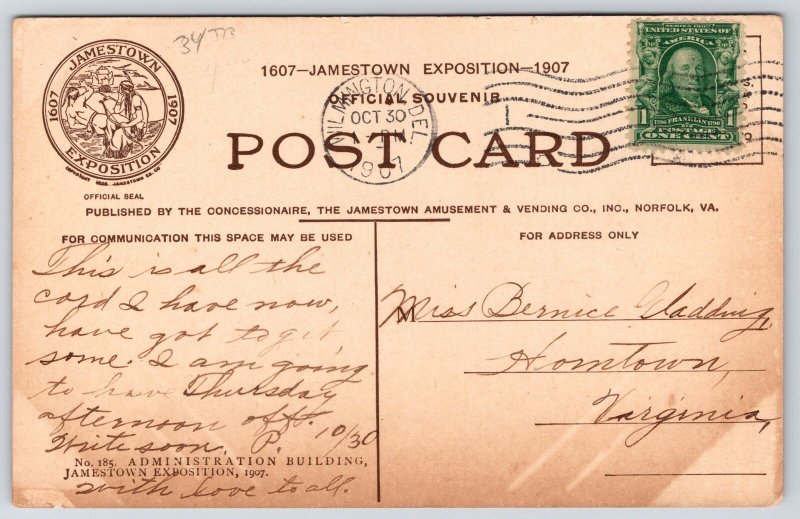 34
1607–JAMESTOWN EXPOSITION–1907
OFFICIAL SOUVENIR
POST CARD
JAMESTOWN
1607 1907
EXPOSITION
OFFICIAL SEAL
WILMINGTON, DEL.
OCT 30
1907
SERIES 1902
UNITED STATES OF
AMERICA
1 1706 FRANKLIN 1790 1
POSTAGE
ONE CENT
PUBLISHED BY THE CONCESSIONAIRE, THE JAMESTOWN AMUSEMENT & VENDING CO., INC., NORFOLK, VA.
FOR COMMUNICATION THIS SPACE MAY BE USED
This is all the
card I have now,
have got to get
some. I am going
to have Thursday
afternoon off.
Write soon. P. 10/30
No. 185. ADMINISTRATION BUILDING,
JAMESTOWN EXPOSITION, 1907.
with love to all.
FOR ADDRESS ONLY
Miss Bernice Gladding,
Horntown,
Virginia,